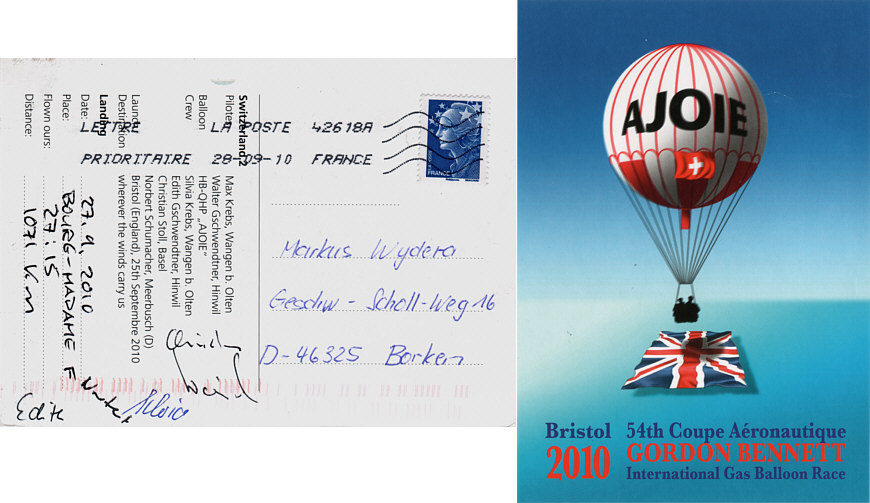 Switzerland 2
Piloten Max Krebs, Wangen b. Olten
Walter Gschwendtner, Hinwil
Balloon HB-QHP „AJOIE"
Crew Silvia Krebs, Wangen b. Olten
Edith Gschwendtner, Hinwil
Christian Stoll, Basel
Norbert Schumacher, Meerbusch (D)
Launch Bristol (England), 25th Septembre 2010
Destination wherever the winds carry us
Landing
Date: 27.9.2010
Place: BOURG-MADAME F
Flown ours: 27:15
Distance: 1071 km
LETTRE LA POSTE 42618A
PRIORITAIRE 28-09-10 FRANCE
FRANCE
Markus Wydera
Geschw - Scholl-Weg 16
D-46325 Borken
Silvia
Edith
AJOIE
Bristol
2010
54th Coupe Aéronautique
GORDON BENNETT
International Gas Balloon Race